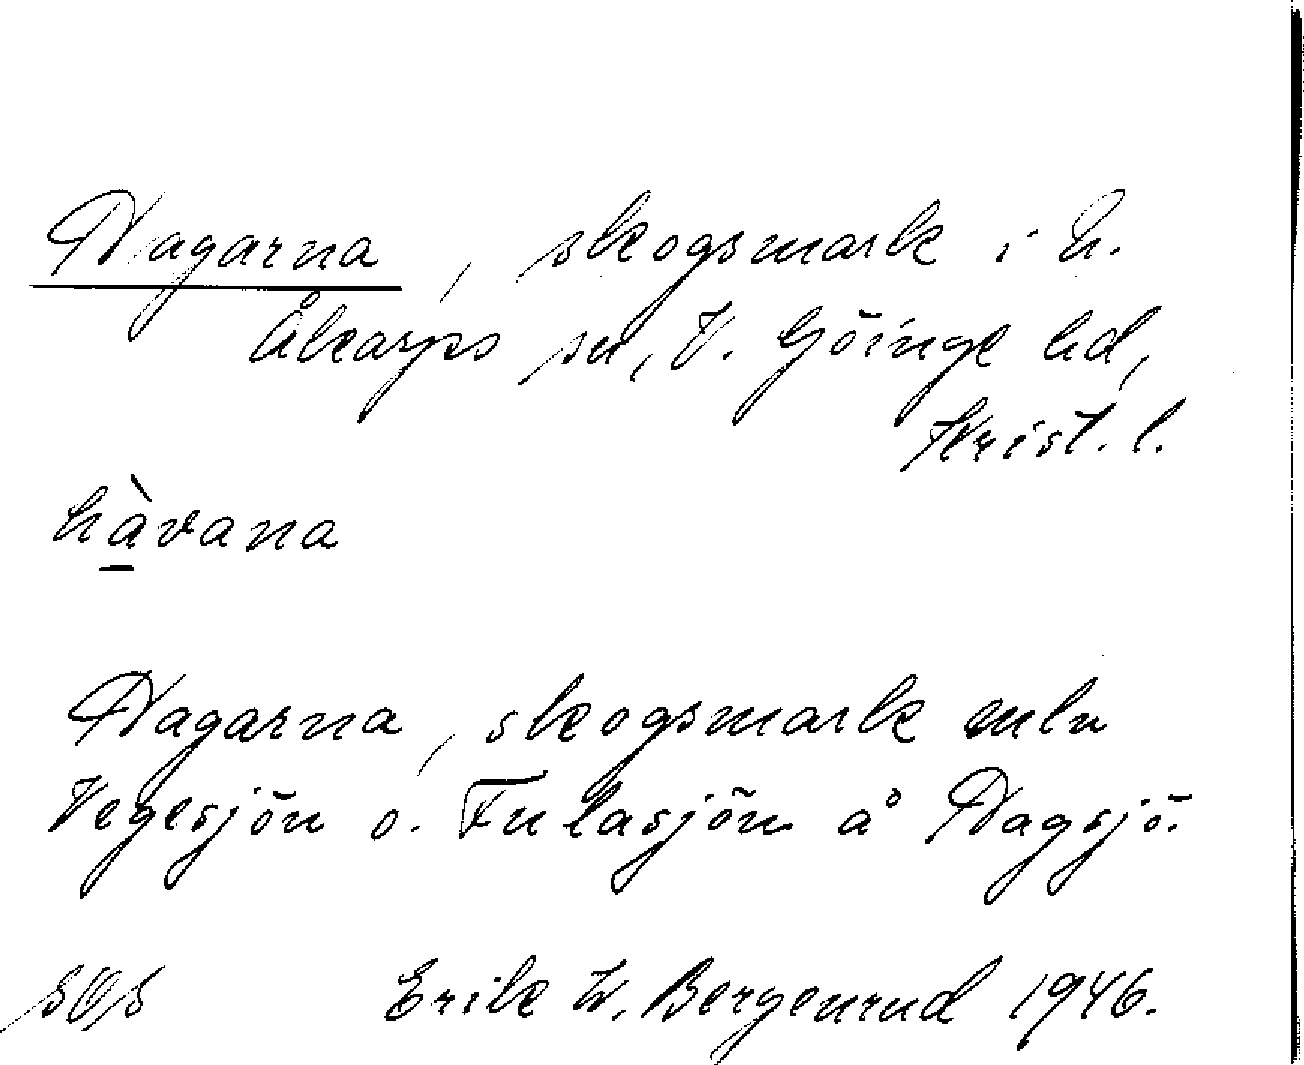 Hagarna, skogsmark i N.
Åkarps sn, V. Göinge hd,
Krist. l.
hàvana
Hagarna, skogsmark mln
Vegesjön o. Fulasjön å Hagsjö.
Erik W. Bergenrud 1946.